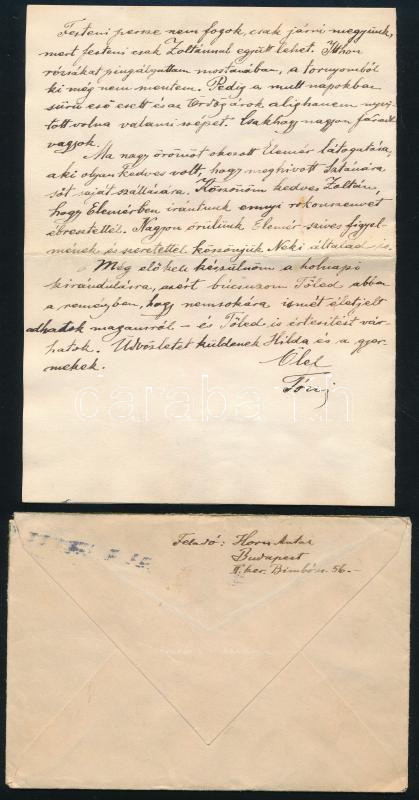 Festeni persze nem fogok, csak járni megyünk,
mert festeni csak Zoltánnal együtt lehet. Itthon
rózsákat pingálgattam mostanában, a tornyomból
ki még nem mentem. Pedig a mult napokban
sürü eső esett és az Ördögárok alighanem nyuj-
tott volna valami szépet. Csakhogy nagyon fáradt
vagyok.
Ma nagy örömöt okozott Elemér látogatása,
aki olyan kedves volt, hogy meghivott Sztánára
sőt saját szállására. Köszönöm kedves Zoltán,
hogy Elemérben irántunk ennyi rokonszenvet
ébresztettél. Nagyon örülünk Elemér szives figyel-
mének és szeretettel köszönjük Neki általad is.
Még elő kell készülnöm a holnapi
kirándulásra, azért búcsuzom Tőled abban
a reményben, hogy nemsokára ismét életjelt
adhatok magamról – és Tőled is értesitést vár-
hatok. Üdvözletet küldenek Hilda és a gyer-
mekek.
Ölel
Tóni
Feladó: Horn Antal
Budapest
II. ker. Bimbó u. 56.–
darabanth